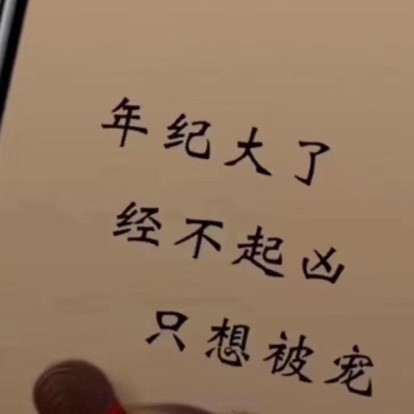 年纪大了
经不起凶
只想被宠